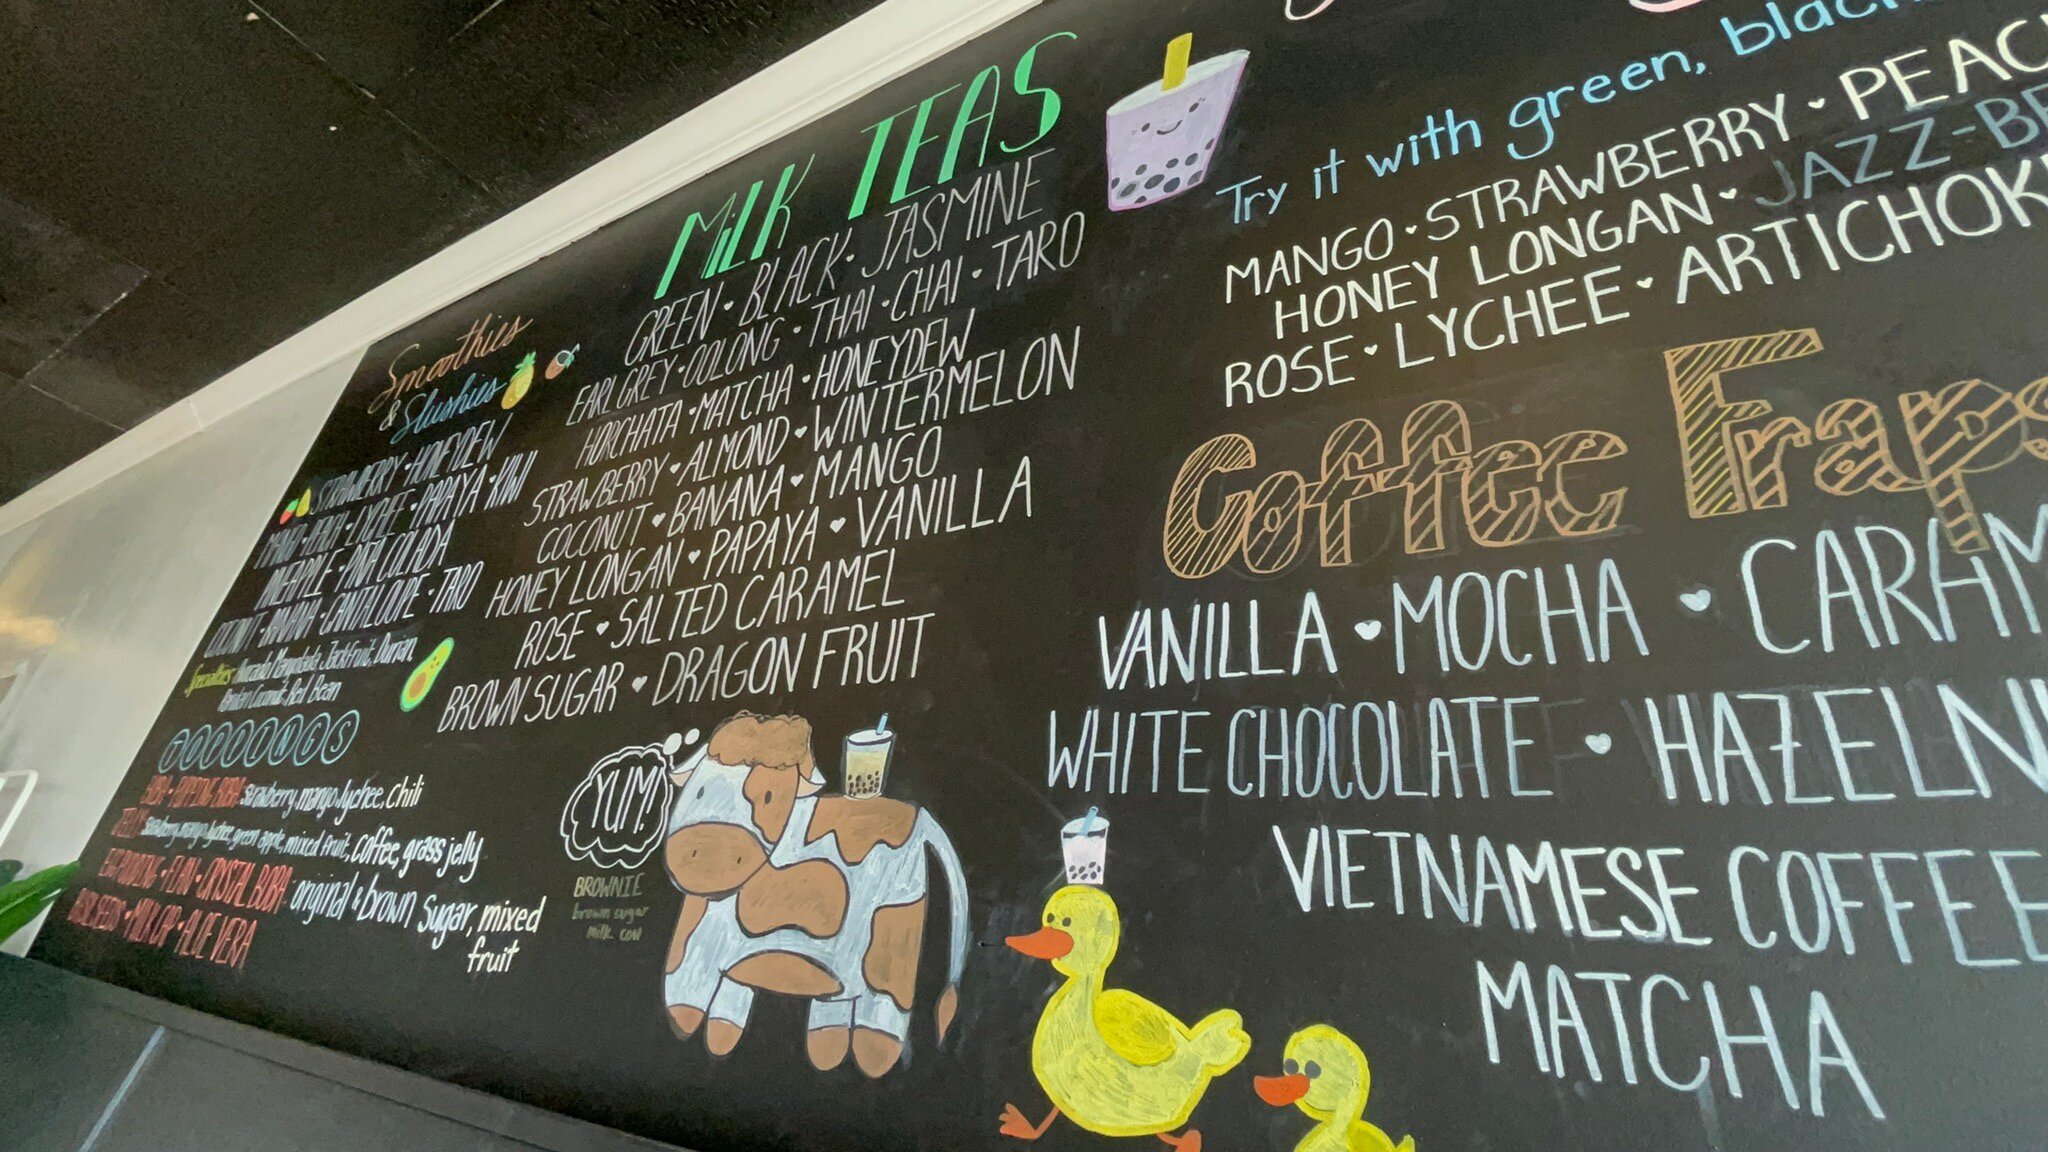 Smoothies
& Slushies
STRAWBERRY · HONEYDEW
MANGO · PEACH · LYCHEE · PAPAYA · KIWI
PINEAPPLE · PINA COLADA
COCONUT · BANANA · CANTALOUPE · TARO
Specialties: Avocado Mangodada Jackfruit, Durian,
Coconut, Red Bean
TOPPINGS
BOBA · POPPING BOBA: strawberry, mango, lychee, chili
JELLY: strawberry, mango, lychee, green apple, mixed fruit, coffee, grass jelly
EGG PUDDING · FLAN · CRYSTAL BOBA: original & brown sugar, mixed fruit
BASIL SEEDS · MILK CAP · ALOE VERA
MILK TEAS
GREEN · BLACK · JASMINE
EARL GREY · OOLONG · THAI · CHAI · TARO
HORCHATA · MATCHA · HONEYDEW
STRAWBERRY · ALMOND · WINTERMELON
COCONUT · BANANA · MANGO
HONEY LONGAN · PAPAYA · VANILLA
ROSE · SALTED CARAMEL
BROWN SUGAR · DRAGON FRUIT
YUM!
BROWNIE
brown sugar
milk cow
Try it with green, black
MANGO · STRAWBERRY · PEAC
HONEY LONGAN · JAZZ-BE
ROSE · LYCHEE · ARTICHOK
Coffee Fraps
VANILLA · MOCHA · CARAM
WHITE CHOCOLATE · HAZELN
VIETNAMESE COFFEE
MATCHA